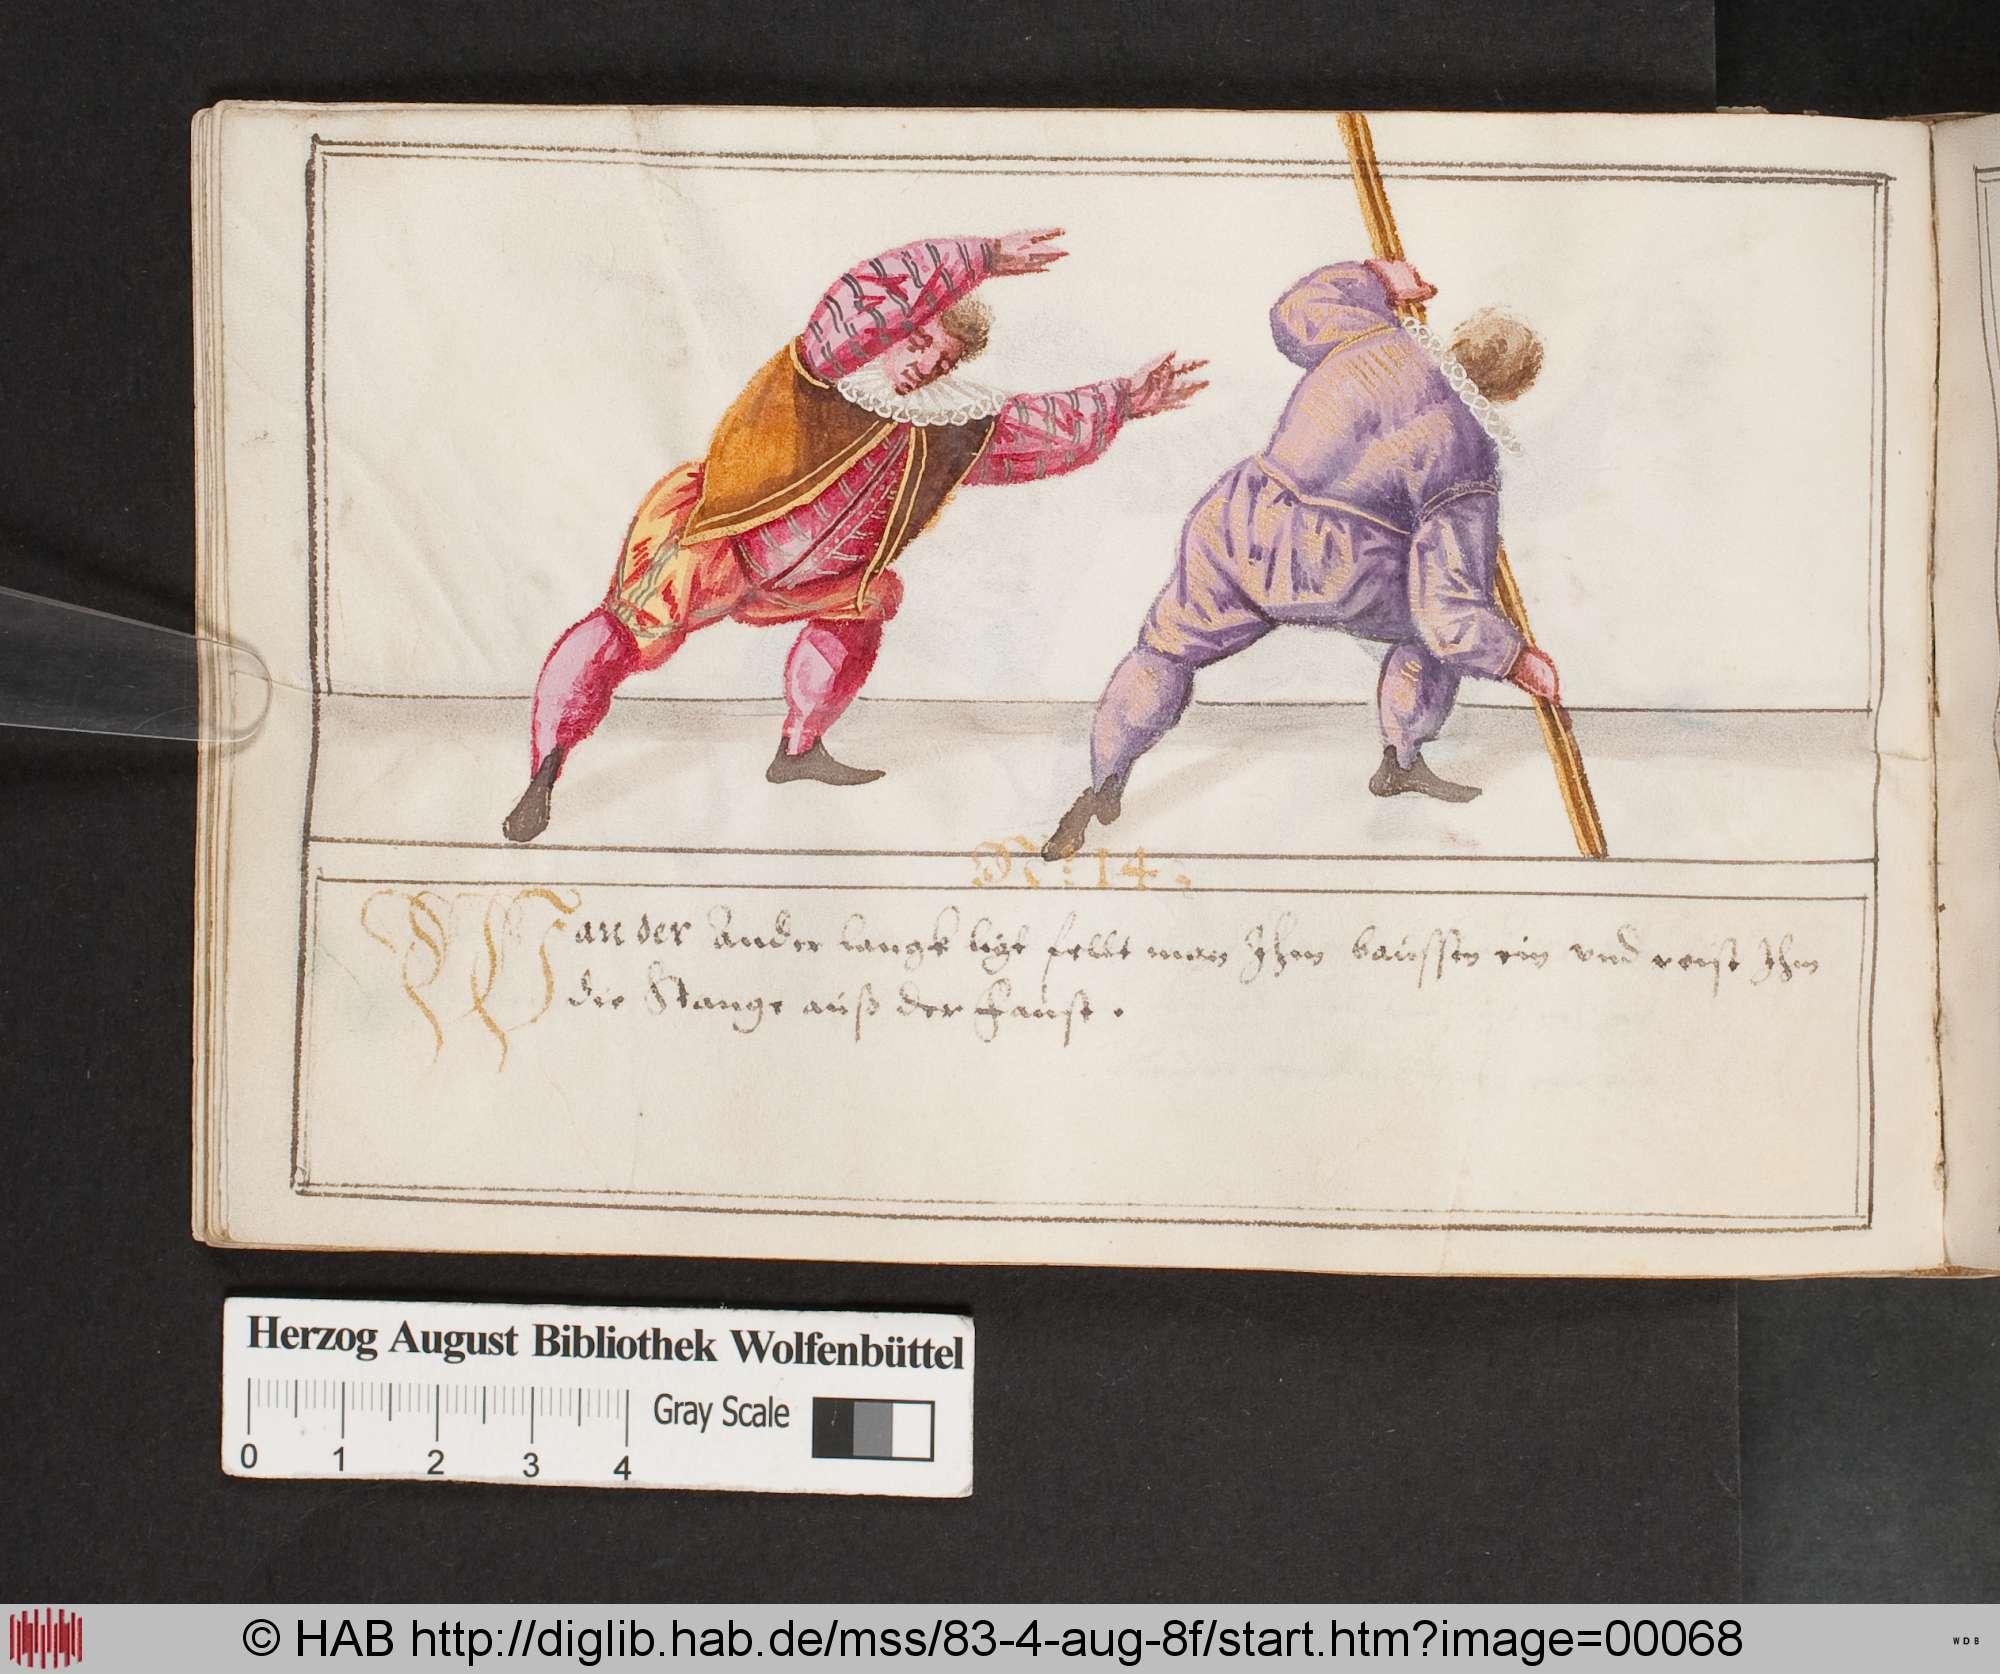 Nº: 14.
Wan der Ander langk ligt fellt man Ihm baussen ein vnd reist Ihm
die Stange auß der Faust.
Herzog August Bibliothek Wolfenbüttel
0 1 2 3 4
Gray Scale
© HAB http://diglib.hab.de/mss/83-4-aug-8f/start.htm?image=00068
WDB